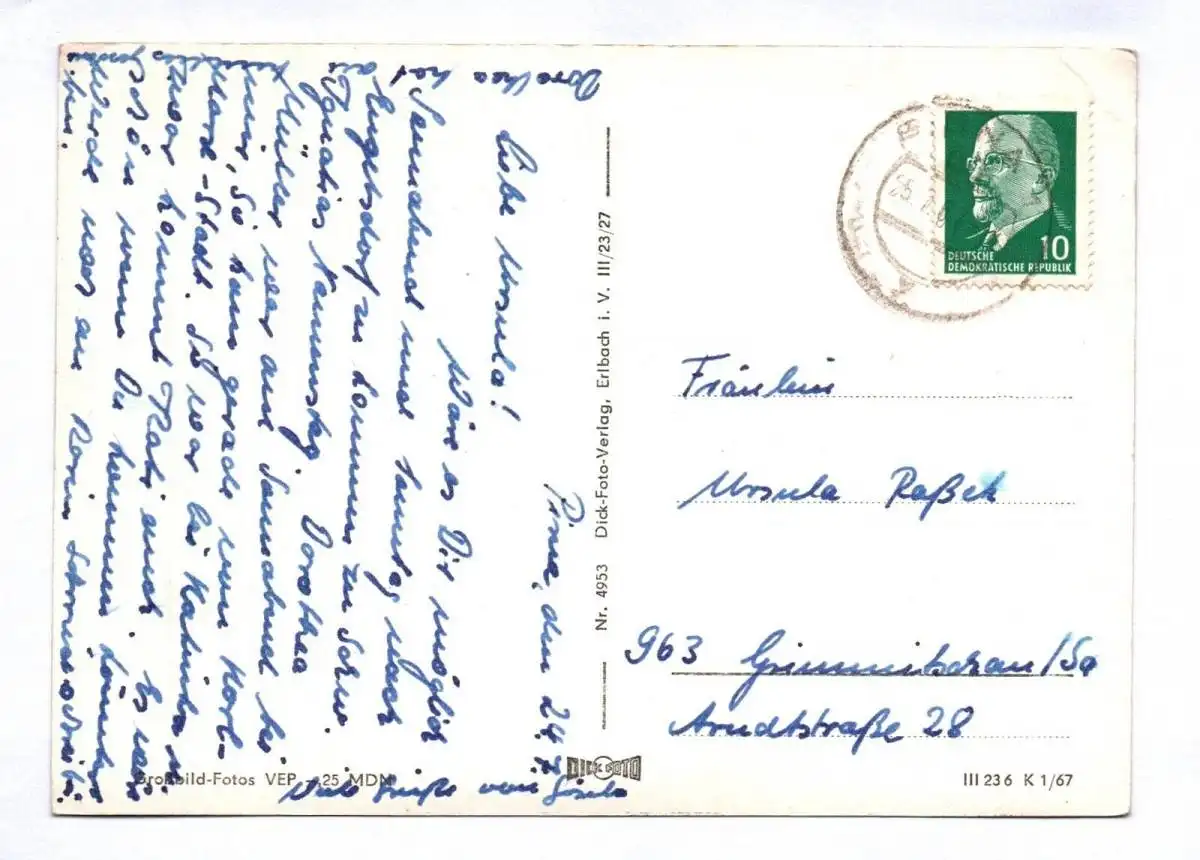 Pirna, den 24.7.
Liebe Ursula!
Wäre es Dir möglich
Sonnabend und Sonntag nach
Engelsdorf zu kommen zu
Ignatias Namenstag. Dorothea
Müller war am Sonnabend bei
mir. Sie kam gerade von Karl-
Marx-Stadt. Sie war bei
kommt Kati auch. Es wäre
schön wenn Du kommen könntest.
Werde noch an schreiben.
Dorothea hat
Viele Grüße von Gisela
Großbild-Fotos VEP -,25 MDN
Nr. 4953 Dick-Foto-Verlag, Erlbach i. V. III/23/27
DICK FOTO
10
DEUTSCHE
DEMOKRATISCHE REPUBLIK
Fräulein
Ursula Raßek
963 Crimmitschau/Sa
Arndtstraße 28
III 23 6 K 1/67